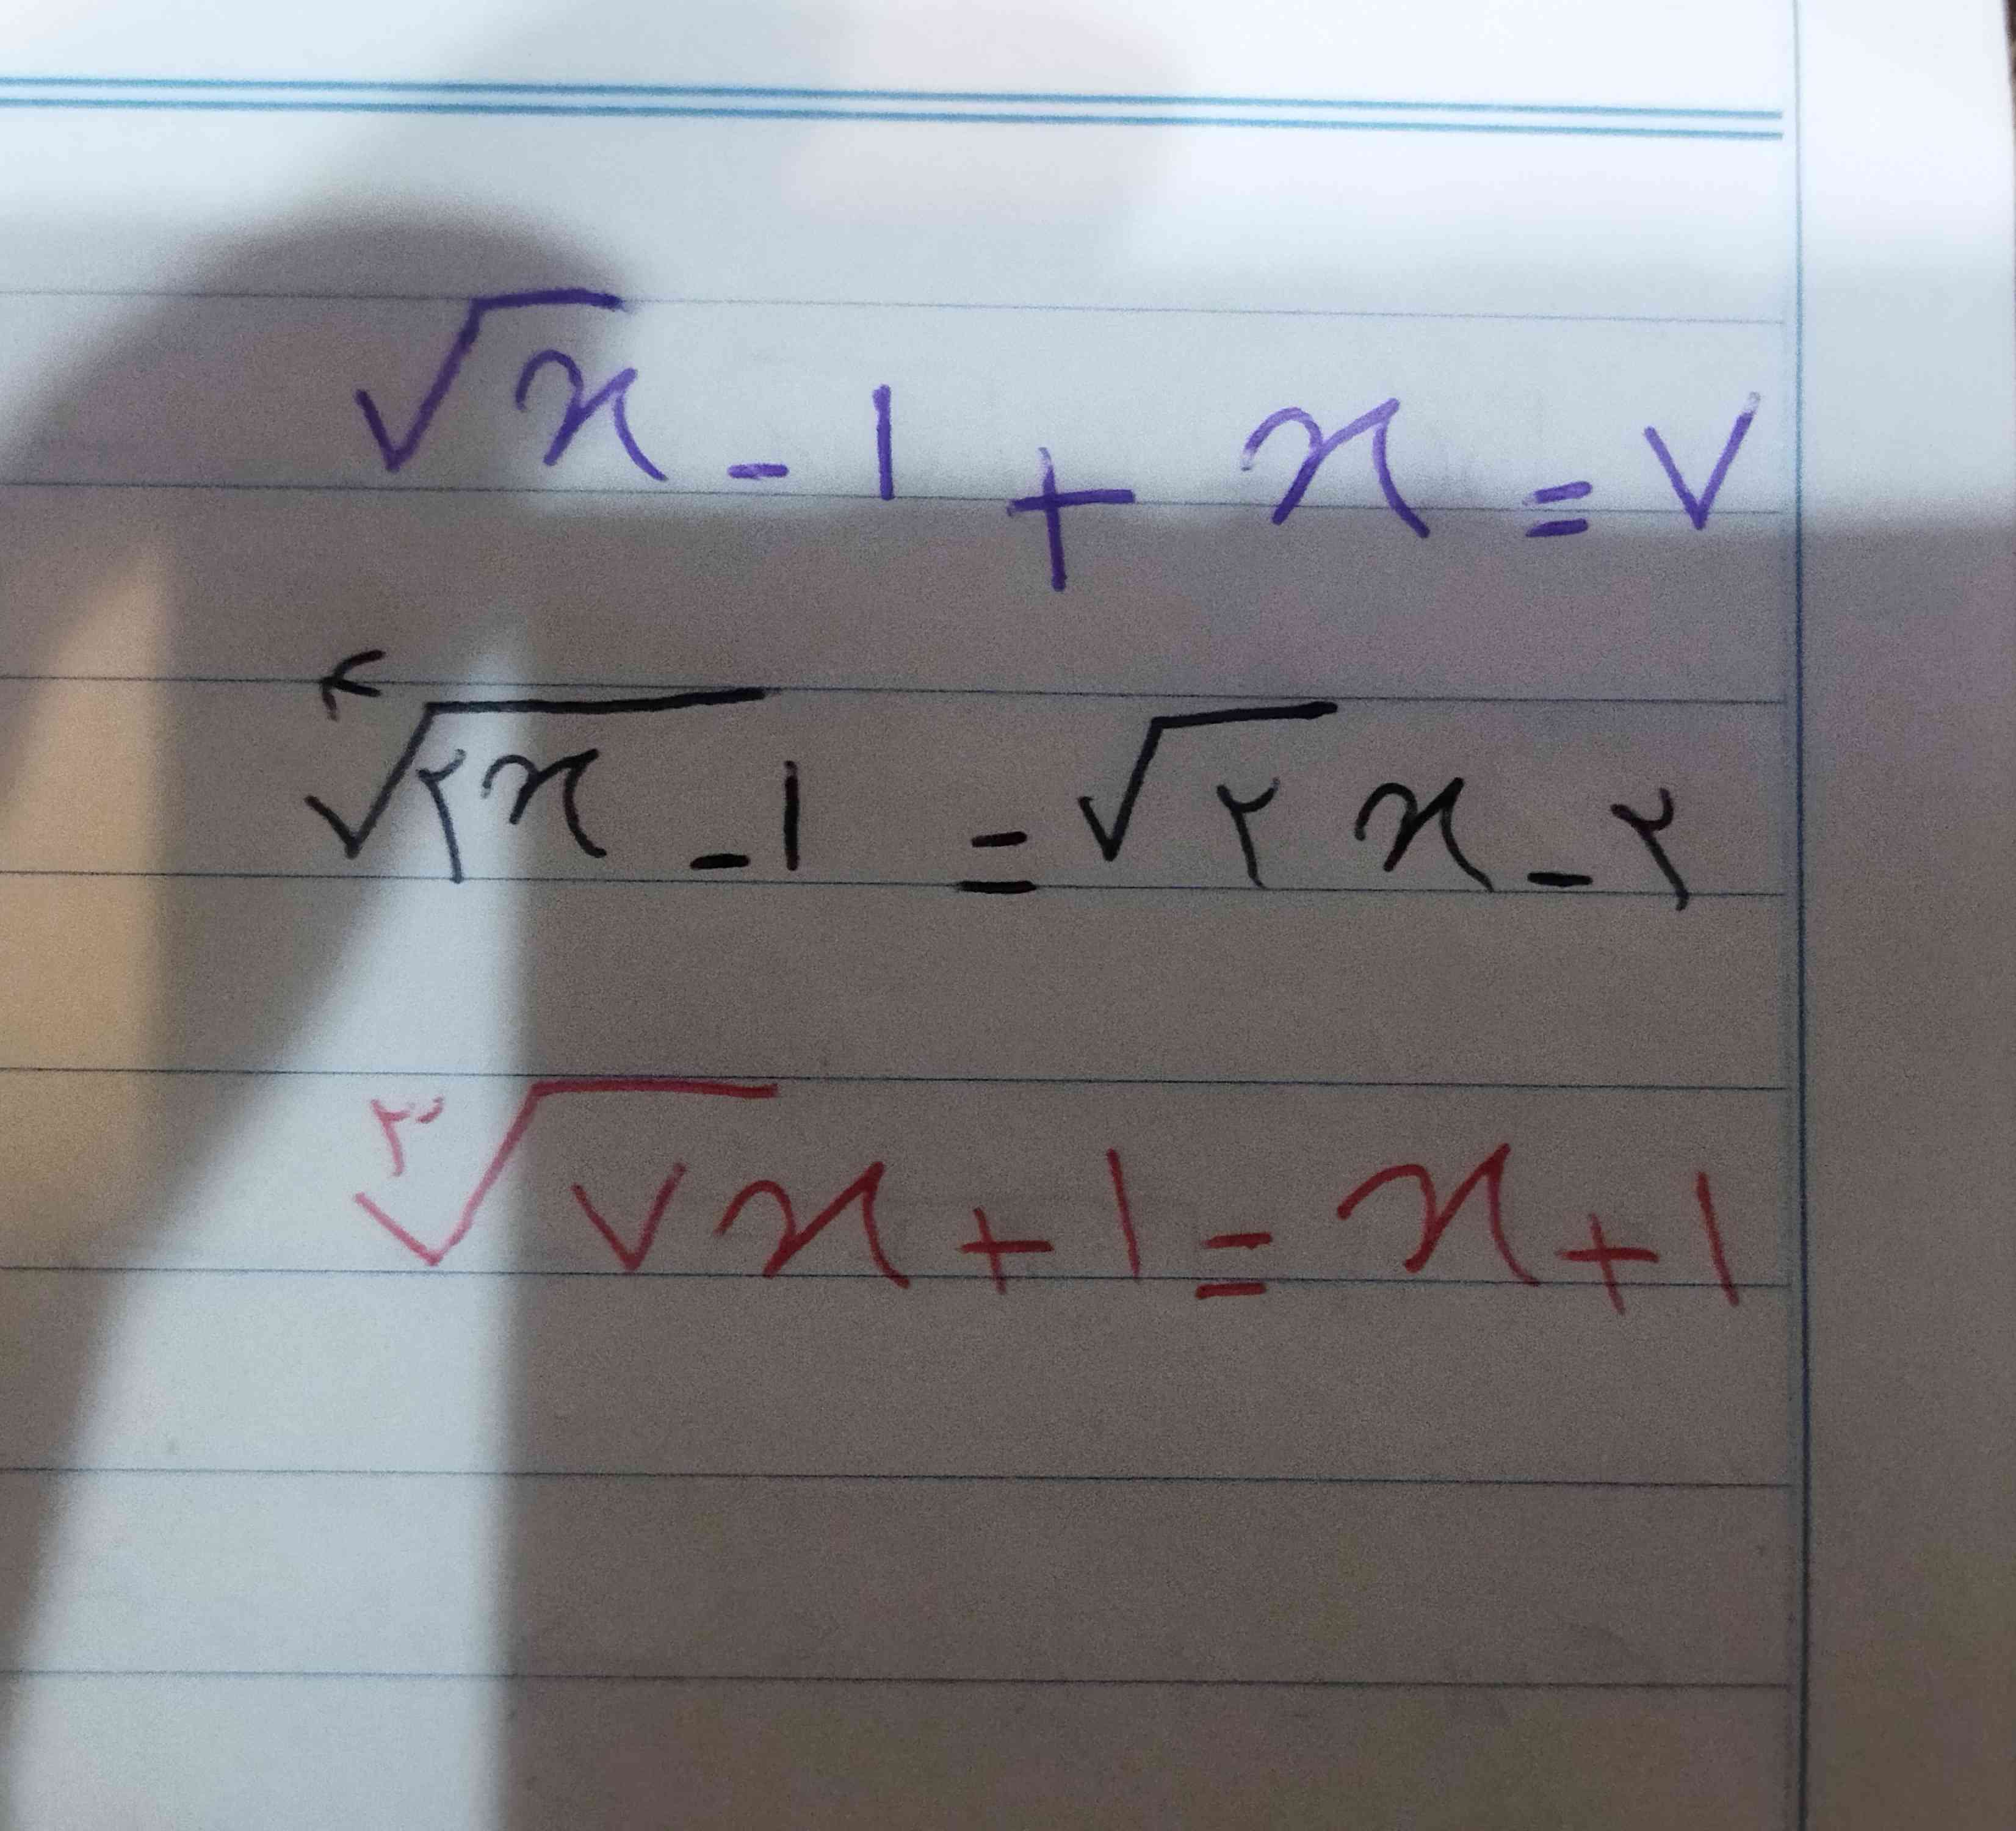 √x - ۱ + x = ۷
⁴√۲x - ۱ = √۲x - ۲
³√۷x + ۱ = x + ۱